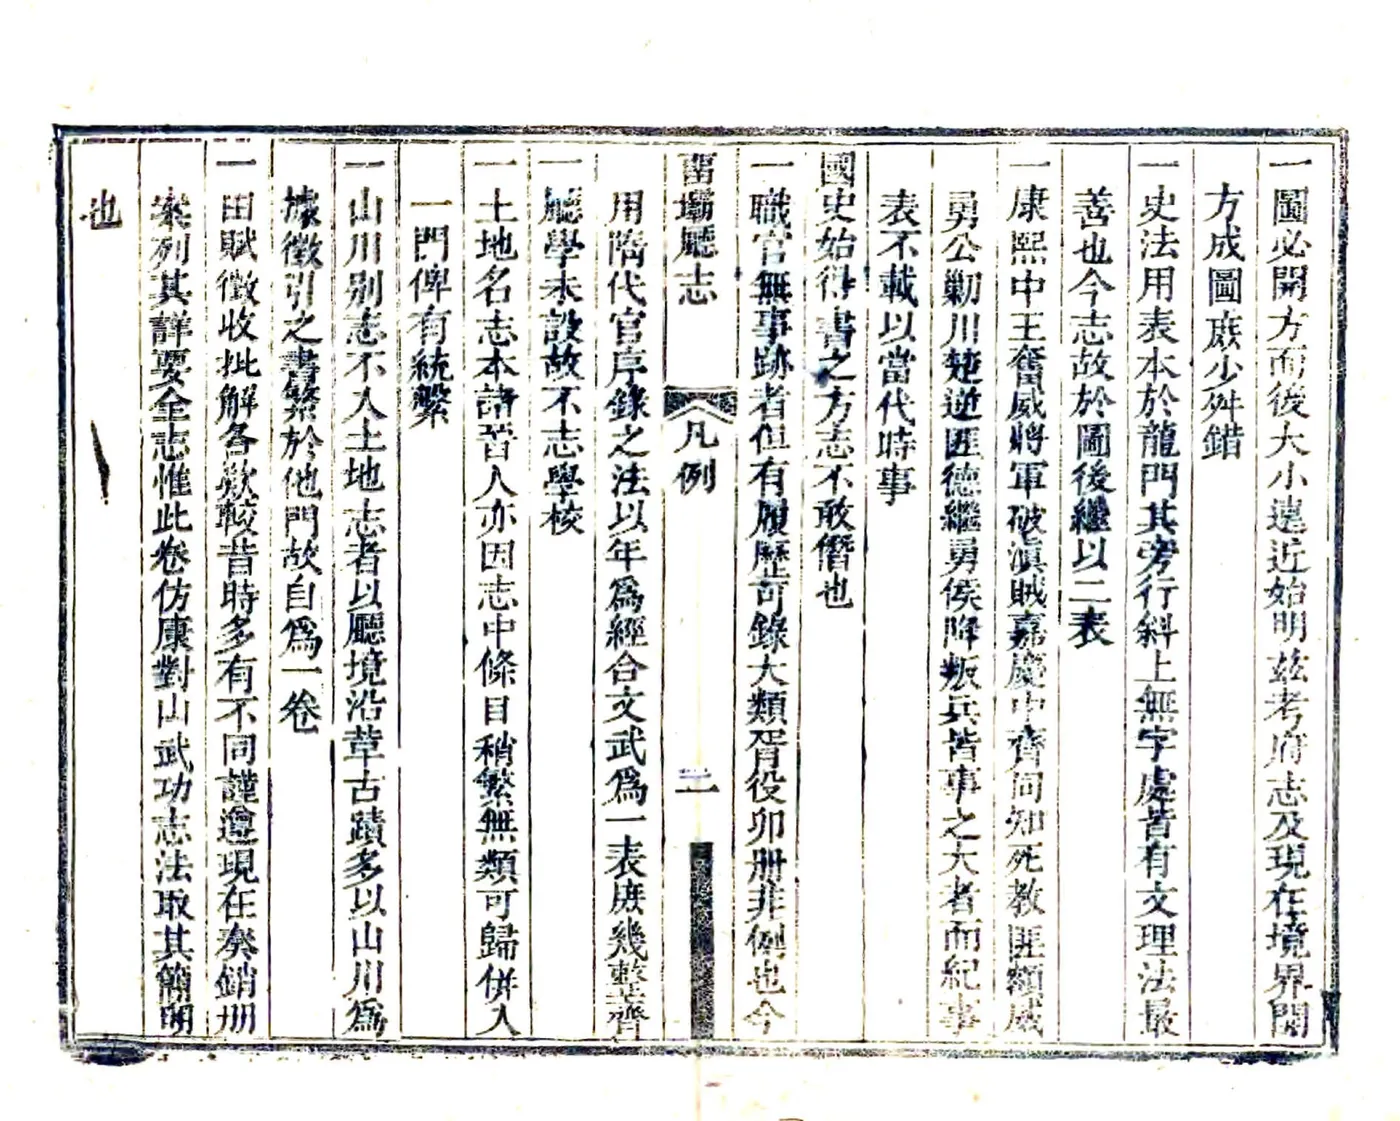 一圖必開方而後大小遠近始明兹考府志及現在境界開
方成圖庶少舛錯
一史法用表本於龍門其旁行斜上無字處皆有文理法最
善也今志故於圖後繼以二表
一康熙中王奮威將軍破滇賊嘉慶中齊同知死教匪額威
勇公勦川楚逆匪德繼勇侯降叛兵皆事之大者而紀事
表不載以當代時事
國史始得書之方志不敢僭也
一職官無事跡者但有履歷可錄大類胥役卯册非例也今
畱壩廳志
凡例
二
用隋代官序錄之法以年為經合文武為一表庶幾整齊
一廳學未設故不志學校
一土地名志本諸晉人亦因志中條目稍繁無類可歸併入
一門俾有統繫
一山川别志不入土地志者以廳境沿革古蹟多以山川為
據徵引之書繁於他門故自為一卷
一田賦徵收批解各欵較昔時多有不同謹遵現在奏銷册
案列其詳要全志惟此卷仿康對山武功志法取其簡明
也